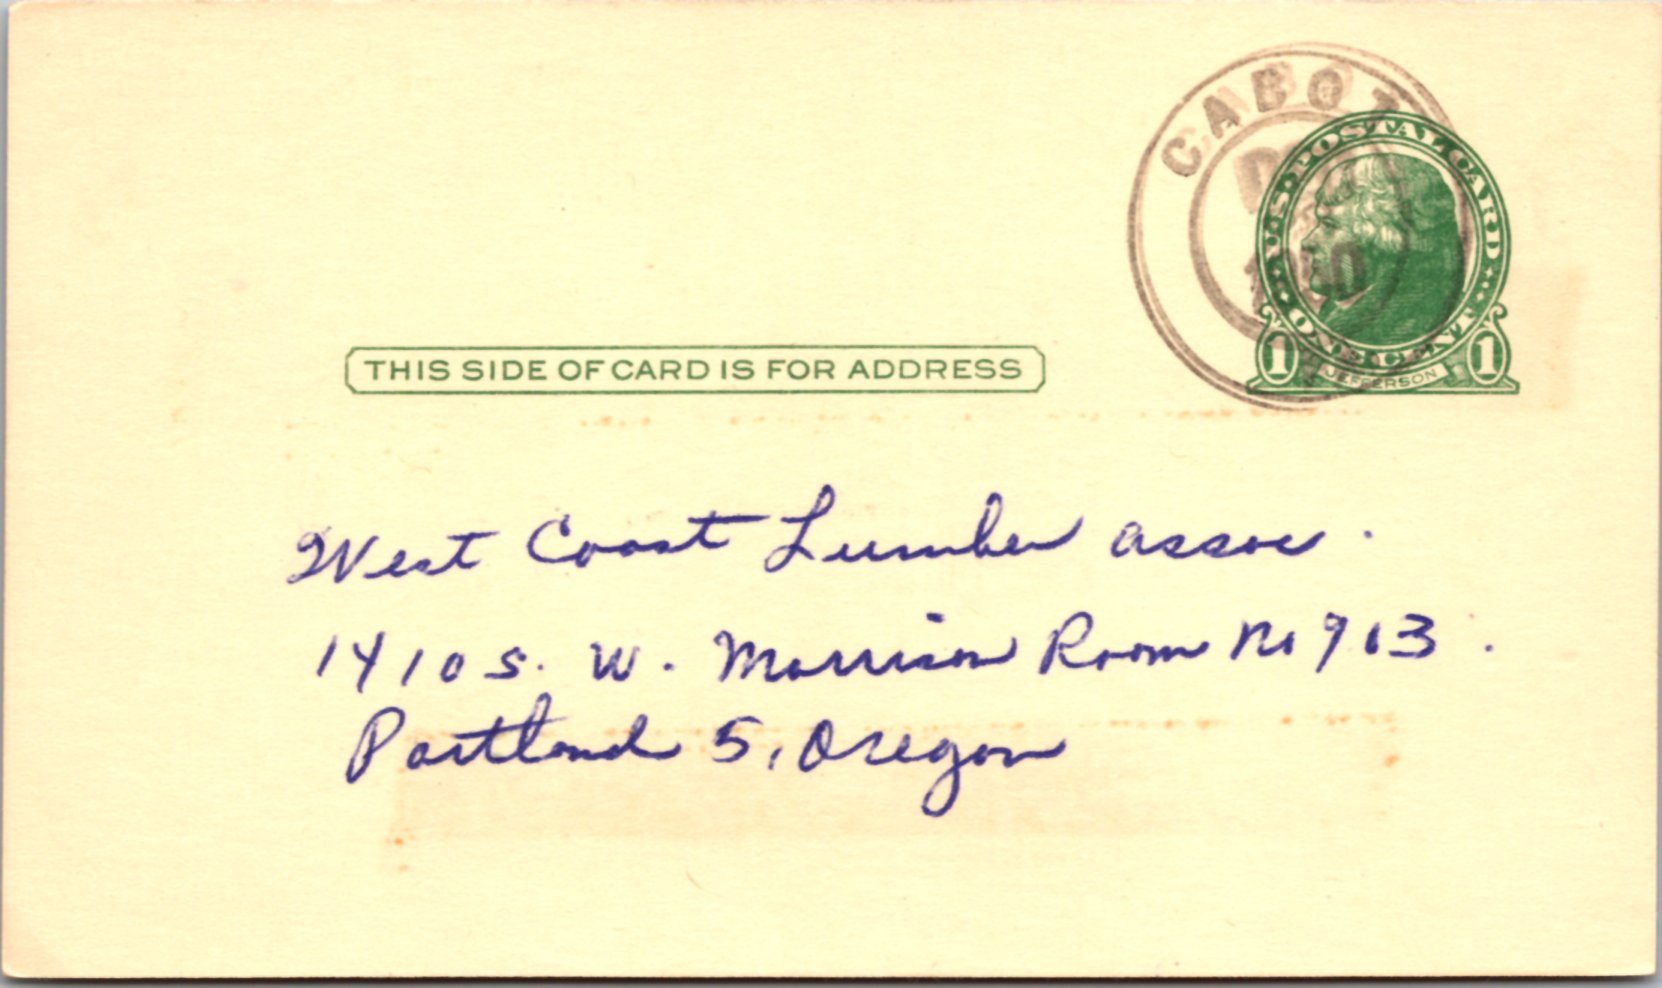 CABOT
U.S. POSTAL CARD
ONE CENT
1 JEFFERSON 1
THIS SIDE OF CARD IS FOR ADDRESS
West Coast Lumber assoc.
1410 S. W. Morrison Room No 913.
Portland 5, Oregon